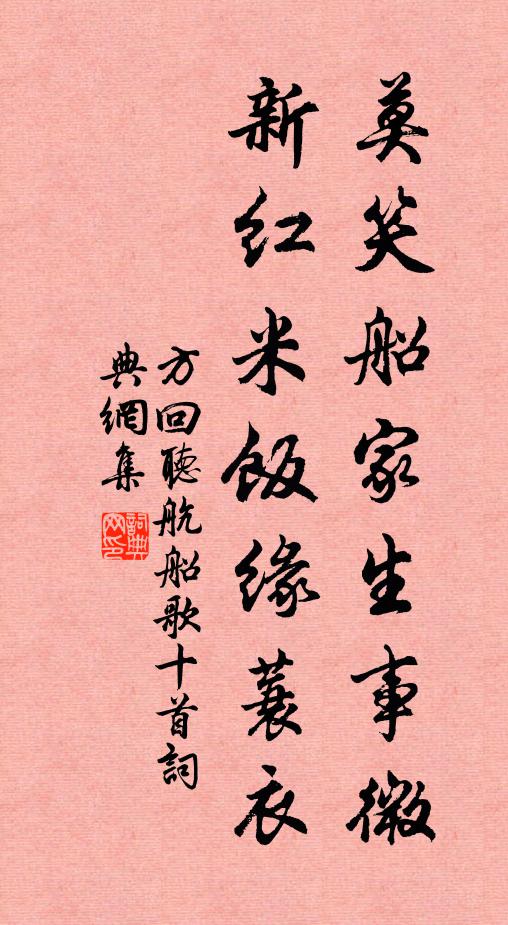 莫笑船家生事微
新红米饭缘蓑衣
方回聽航船歌十首詞
典網集
詞典網印